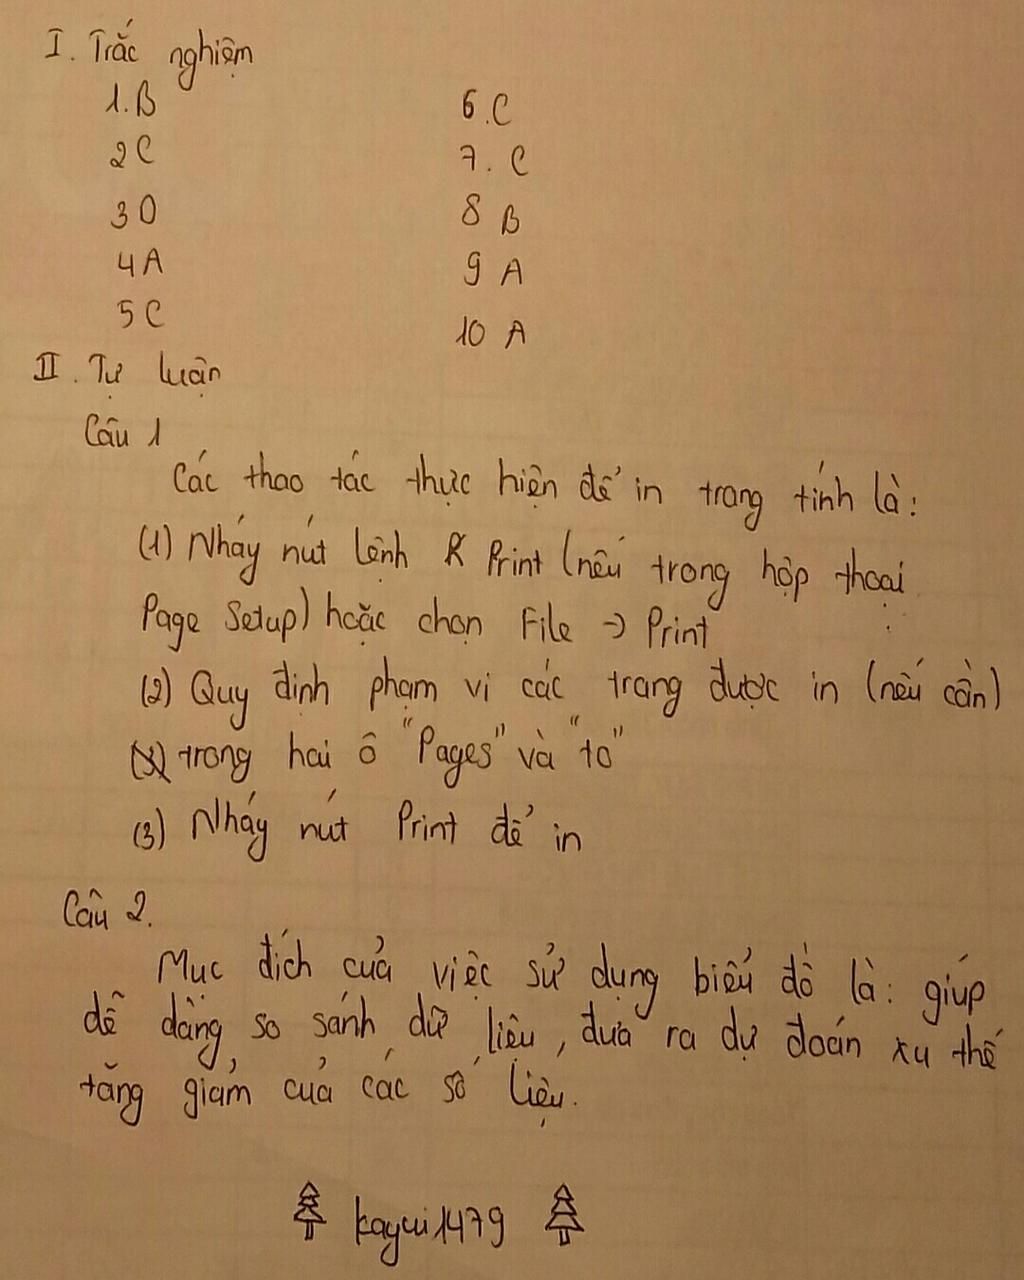 I. Trắc nghiệm
1. B
2 C
3 D
4 A
5 C
6. C
7. C
8 B
9 A
10 A
II. Tự luận
Câu 1
Các thao tác thực hiện để in trang tính là:
(1) Nháy nút lệnh Print (nếu trong hộp thoại
Page Setup) hoặc chọn File → Print
(2) Quy định phạm vi các trang được in (nếu cần)
trong hai ô "Pages" và "to"
(3) Nháy nút Print để in
Câu 2.
Mục đích của việc sử dụng biểu đồ là: giúp
dễ dàng so sánh dữ liệu, đưa ra dự đoán xu thế
tăng giảm của các số liệu.